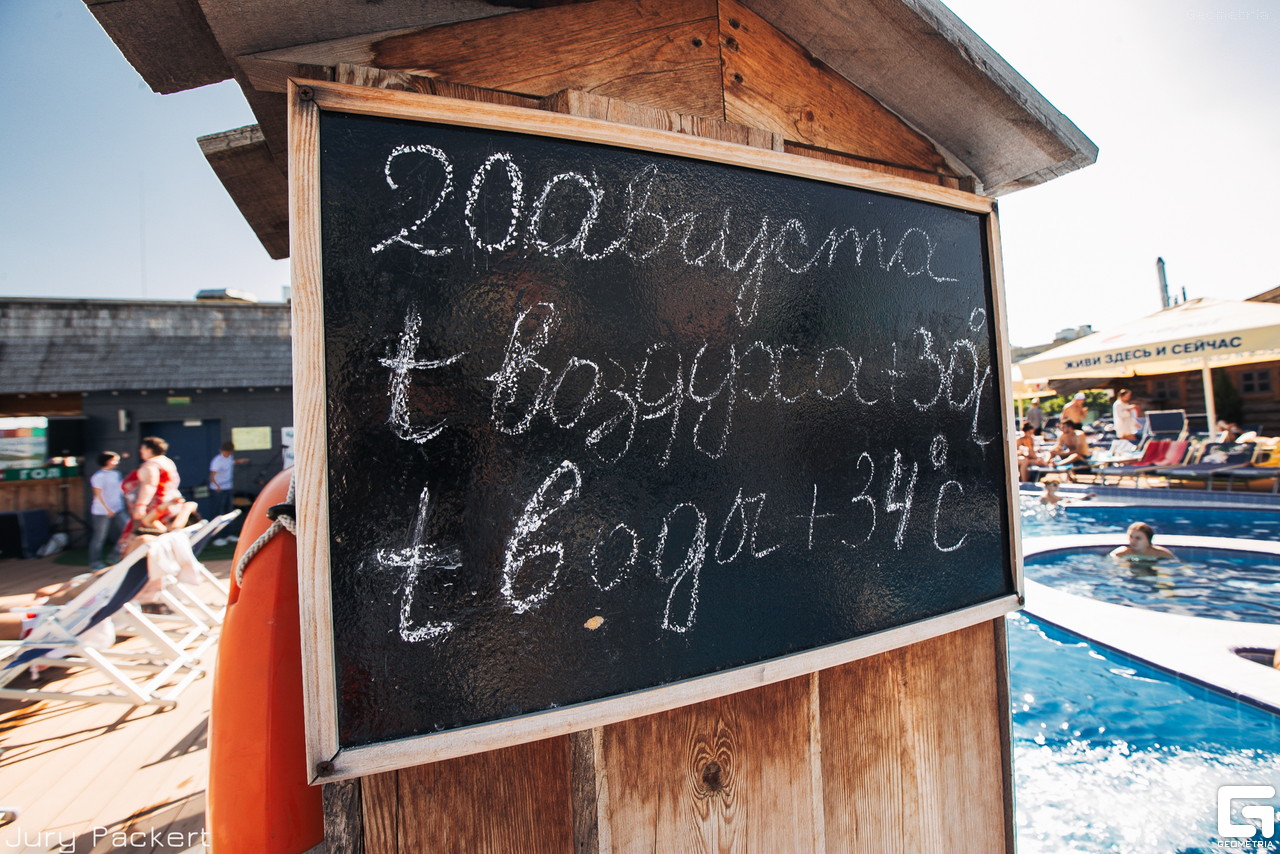 20 августа
t воздуха +30°
t вода +34°C
ЖИВИ ЗДЕСЬ И СЕЙЧАС
ГОЛ
Jury Packert
GEOMETRIA